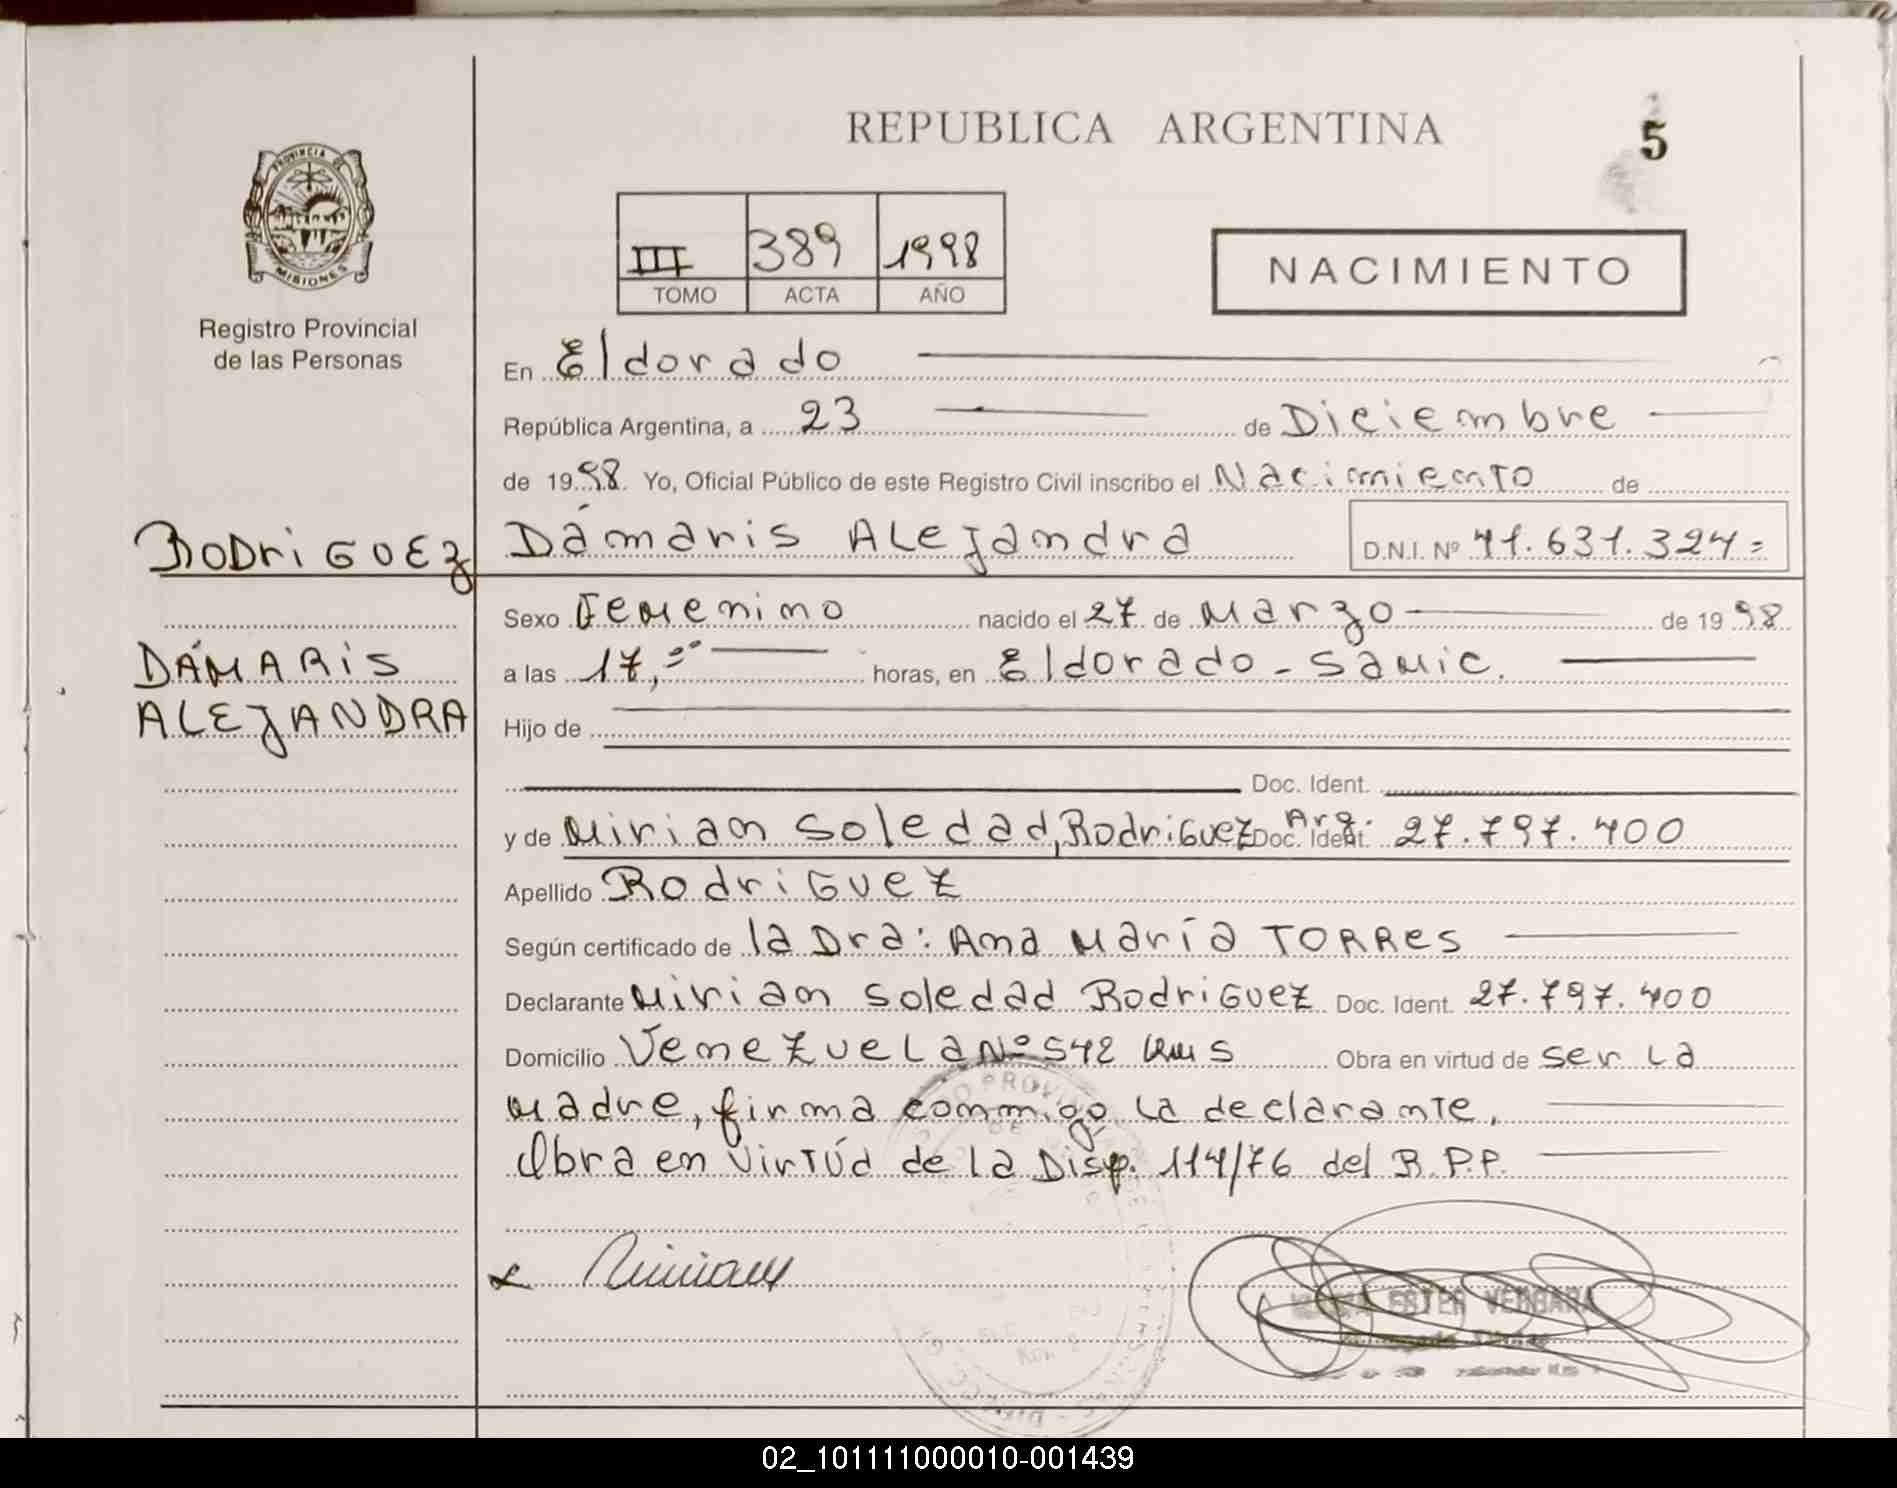 REPUBLICA ARGENTINA
5
PROVINCIA DE
MISIONES
Registro Provincial
de las Personas
III 389 1998
TOMO ACTA AÑO
NACIMIENTO
En Eldorado
República Argentina, a 23 de Diciembre
de 1998. Yo, Oficial Público de este Registro Civil inscribo el Nacimiento de
RODriGUEz Dámaris ALeJandra D.N.I. Nº 41.631.324=
Sexo Femenino nacido el 27 de Marzo de 1998
DÁMARiS
ALEJANDRA
a las 17, horas, en Eldorado - Samic.
Hijo de
Doc. Ident.
y de Miriam Soledad, RodriGuez Doc. Ident. Arg. 27.797.400
Apellido RodriGuez
Según certificado de la Dra: Ana María TORRes
Declarante Miriam Soledad RodriGuez Doc. Ident. 27.797.400
Domicilio VenezueLa Nº 542 Obra en virtud de ser La
Madre, firma conmigo La declarante,
Obra en VirTúd de la Disp. 114/76 del R.P.P.
Miriam
ESTER VERGARA
02_101111000010-001439